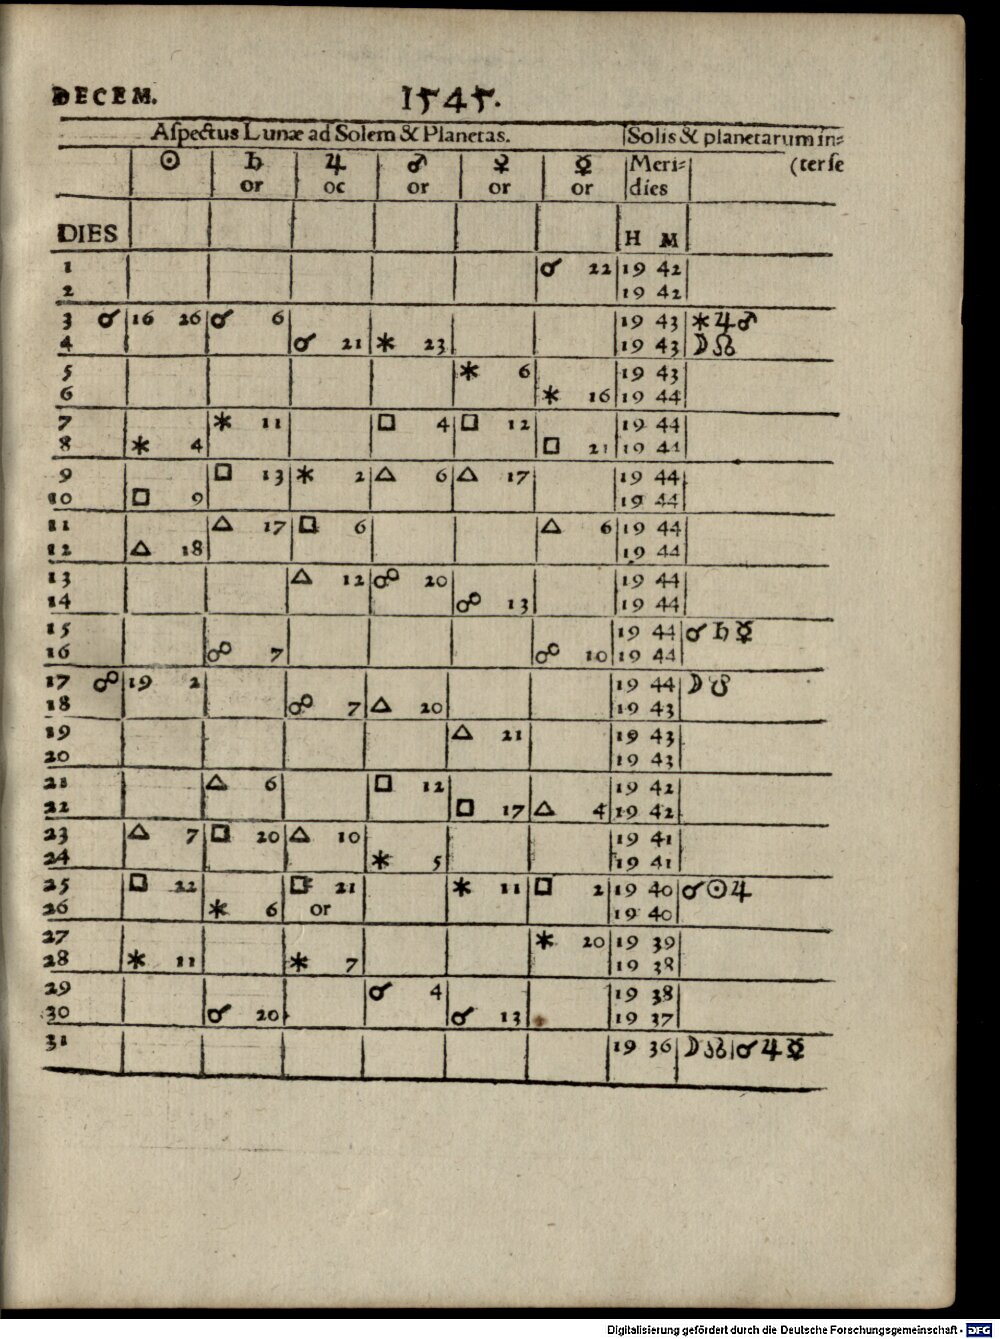 DECEM. 1545.
Aspectus Lunæ ad Solem & Planetas. Solis & planetarum in=
☉ ♄ ♃ ♂ ♀ ☿ Meri= (terse
or oc or or or dies
DIES H M
1 ☌ 22 19 42
2 19 42
3 ☌ 16 26 ☌ 6 19 43 ⚹ ♃ ♂
4 ☌ 21 ⚹ 23 19 43 ☽ ☊
5 ⚹ 6 19 43
6 ⚹ 16 19 44
7 ⚹ 11 □ 4 □ 12 19 44
8 ⚹ 4 □ 21 19 44
9 □ 13 ⚹ 2 △ 6 △ 17 19 44
10 □ 9 19 44
11 △ 17 □ 6 △ 6 19 44
12 △ 18 19 44
13 △ 12 ☍ 20 19 44
14 ☍ 13 19 44
15 19 44 ☌ ♄ ☿
16 ☍ 7 ☍ 10 19 44
17 ☍ 19 2 19 44 ☽ ☋
18 ☍ 7 △ 20 19 43
19 △ 21 19 43
20 19 43
21 △ 6 □ 12 19 42
22 □ 17 △ 4 19 42
23 △ 7 □ 20 △ 10 19 41
24 ⚹ 5 19 41
25 □ 22 □ 21 ⚹ 11 □ 2 19 40 ☌ ☉ ♃
26 ⚹ 6 or 19 40
27 ⚹ 20 19 39
28 ⚹ 11 ⚹ 7 19 38
29 ☌ 4 19 38
30 ☌ 20 ☌ 13 19 37
31 19 36 ☽ ☊ | ☌ ♃ ☿
Digitalisierung gefördert durch die Deutsche Forschungsgemeinschaft - DFG